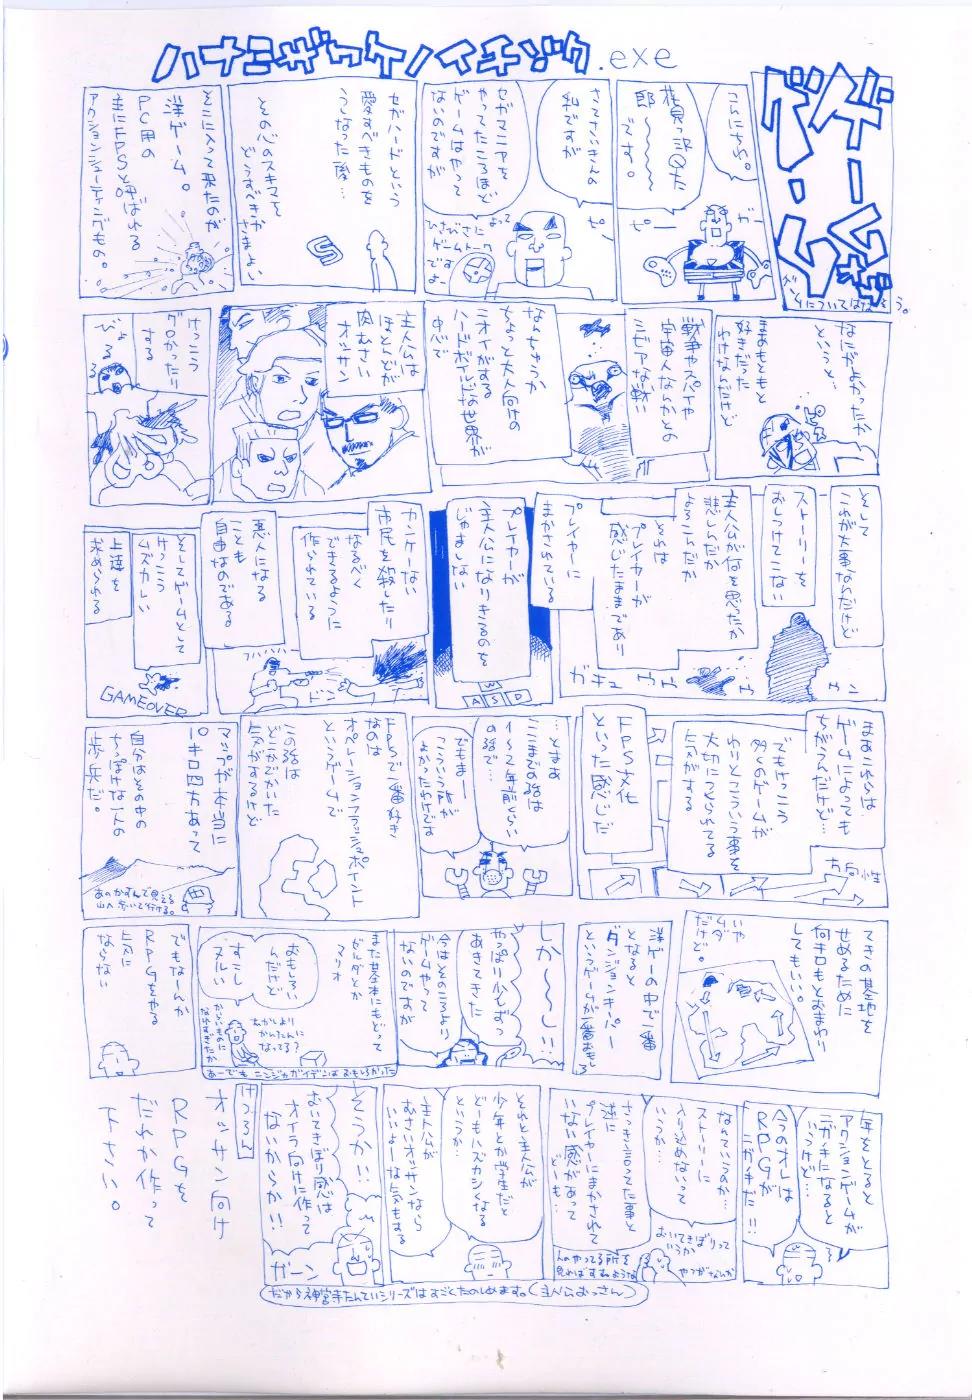 ハナミザワケノイチゾク.exe
ゲームザ
ゲームについてはなそう。
こんにちわ。
花見沢Q太
郎〜〜〜〜
です。
ガー
ピー
さてさいきんの
私ですが
セガマニアを
やってたころほど
ゲームはやって
ないのですが
ピー
よって
ひさびさに
ゲームトーク
ですよー
セガハードという
愛すべきものを
うしなった後…
その心のスキマを
どうすべきか
さまよい
S
そこに入って来たのが
洋ゲーム。
PC用の
主にFPSと呼ばれる
アクションシューティングもの。
なにがよかったか
というと…
まあもともと
好きだった
わけなんだけど
戦争やスパイや
宇宙人なんかとの
シビアな戦い
なんちゅうか
ちょっと大人向けの
ニオイがする
ハードボイルドな世界が
中心で
主人公は
ほとんどが
肉むさい
オッサン
けっこう
グロかったり
する
びょる
そして
これが大事なんだけど
ストーリーを
おしつけてこない
主人公が何を思ったか
悲しんだか
よろこんだか
それは
プレイヤーが
感じたままであり
プレイヤーに
まかされている
ガキュ
ゥゥ
ゥン
プレイヤーが
主人公になりきるのを
じゃましない
W
A S D
カンケーない
市民を殺したり
なるべく
できるように
作られている
悪人になる
ことも
自由なのである
ハハハハ
ドン
そしてゲームとして
けっこう
ムズカしい
上達を
求められる
GAMEOVER
まあこれらは
ゲームによっても
ちがうんだけど…
でもけっこう
多くのゲームが
わりとこういう事を
大切につくられてる
気がする
方向性
FPS文化
といった感じだ
…とまあ
ここまでの話は
1〜2年前くらい
の話で…
でもまー
こういう所が
よかったわけです
FPSで一番好き
なのは
オペレーションフラッシュポイント
というゲームで
この話は
どこかでかいた
気がするけど
マップが本当に
10キロ四方あって
自分はその中の
ちっぽけな一人の
歩兵だ。
あのかすんで見える
山へ歩いて行ける。
てきの基地を
せめるために
何キロもとおまわり
してもいい。
いや
ムダ
だけど。
洋ゲーの中で一番
となると
ダンジョンキーパー
というゲームが一番おもしろ
しか〜〜し!!
やっぱり少しずつ
あきてきた
今はそのころより
ゲームやって
ないのですが
また基本にもどって
ゼルダとか
マリオ
おもしろい
んだけど
すこし
ヌルい
むかしより
かんたんに
なってる?
からいものに
なれすぎたか
あーでもニンジャガイデンはおもしろかった
でもなーんか
RPGをやる
気に
ならない
年をとると
アクションゲームが
ニガキになると
いうけど…
今のオレは
RPGが
ニガキだ!!
なんていうのか…
ストーリーに
入り込めないって
いうか…
さっき言ってた事と
逆に
プレイヤーにまかされて
いない感があって
どーも…
おいてきぼりって
いうか
人のやってる所を
見ればすむような
やつがなんか
それと主人公が
少年とか学生だと
どーもハズカシくなる
というか…
主人公が
むさいオッサンなら
いいよーな気もする
そうか!!
おいてきぼり感は
オイラ向けに作って
ないからか!!
ガーン
けつろん
オッサン向け
RPGを
だれか作って
下さい。
だから神宮寺たんていシリーズはすごくたのしめます。(主人公おっさん)